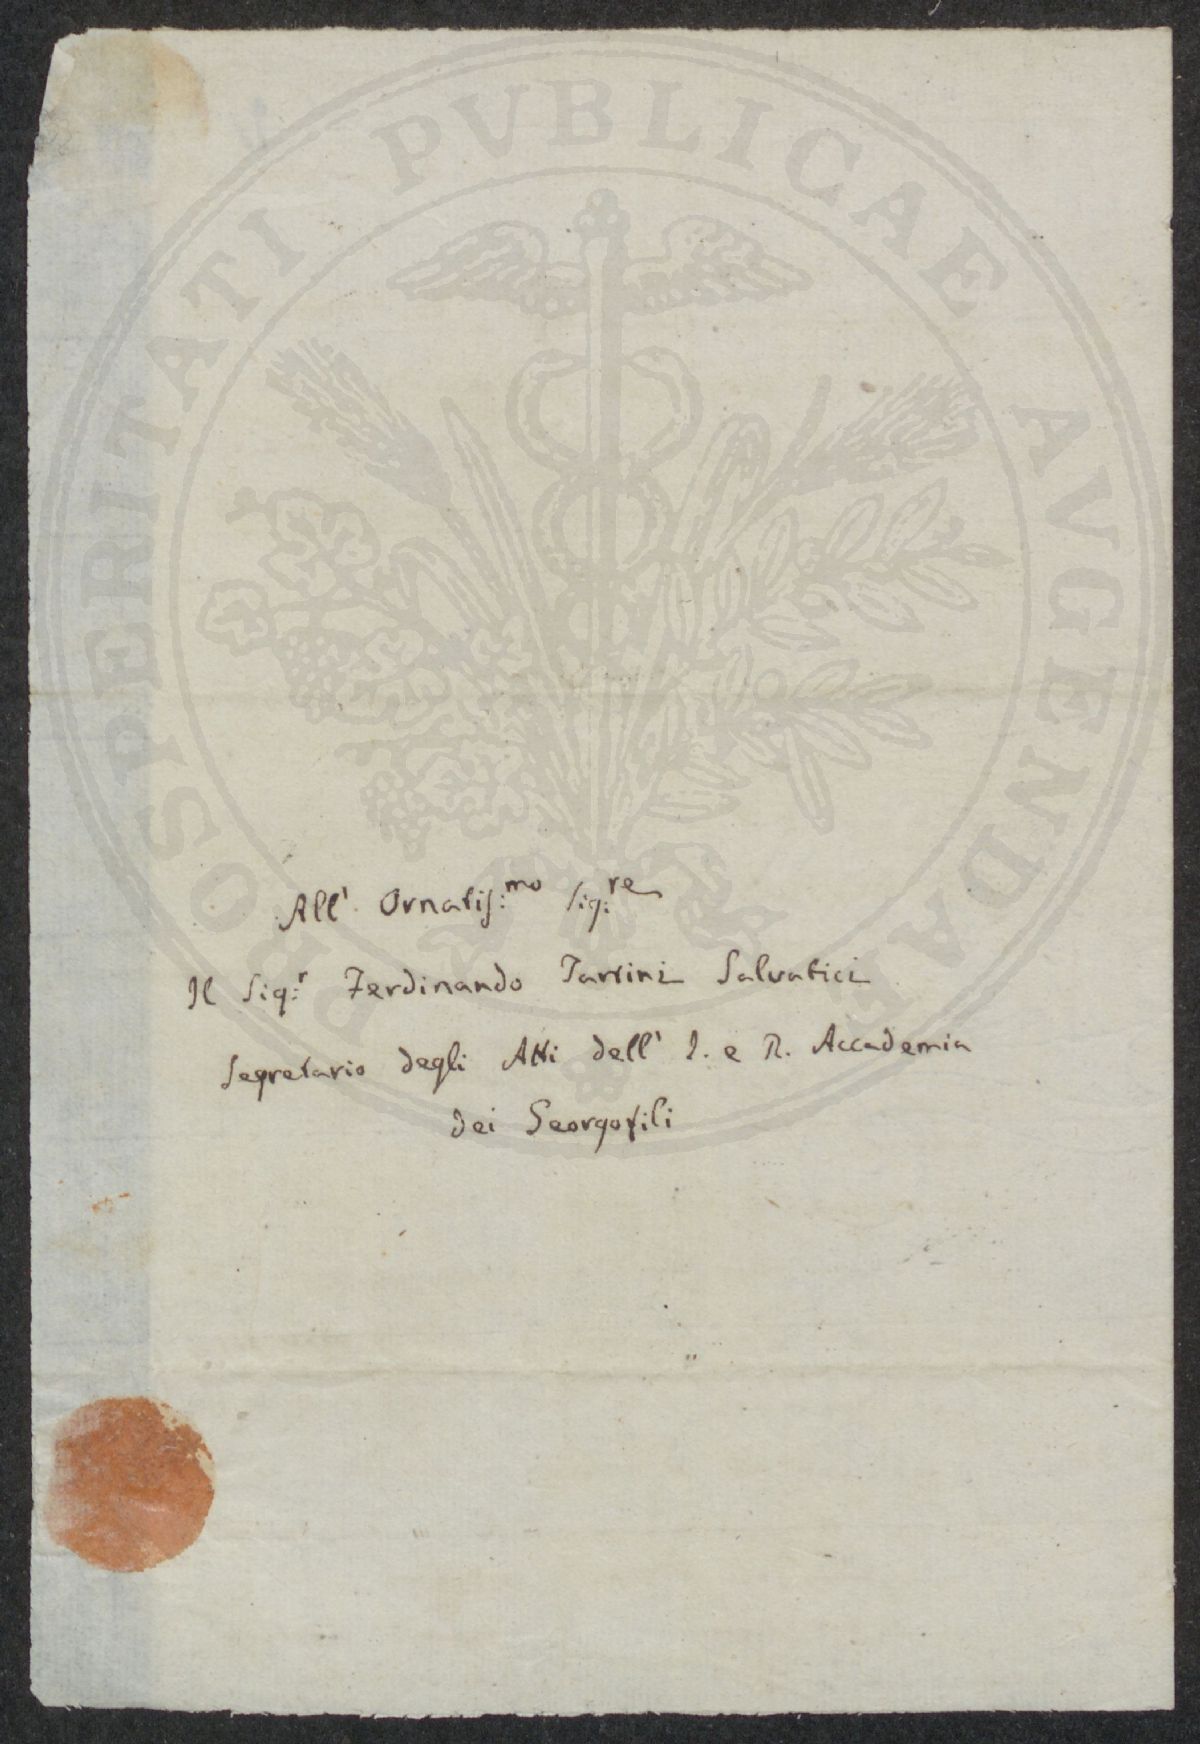 PROSPERITATI PVBLICAE AVGENDAE
All' Ornatis:mo Sig:re
Il Sig:r Ferdinando Tartini Salvatici
Segretario degli Atti dell' I. e R. Accademia
dei Georgofili